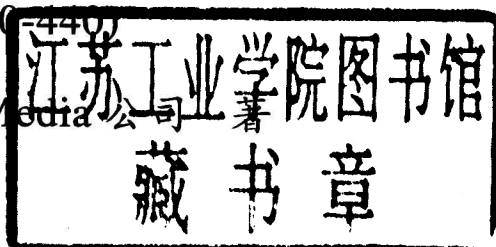 0-440)
江苏工业学院图书馆
Media 公司 著
藏书章